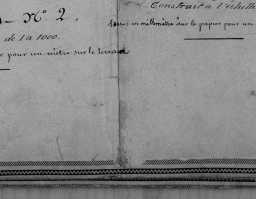 N° 2.
de 1 à 1000.
pour un mètre sur le terrain
Construit à l'échelle
un millimètre sur le papier pour un